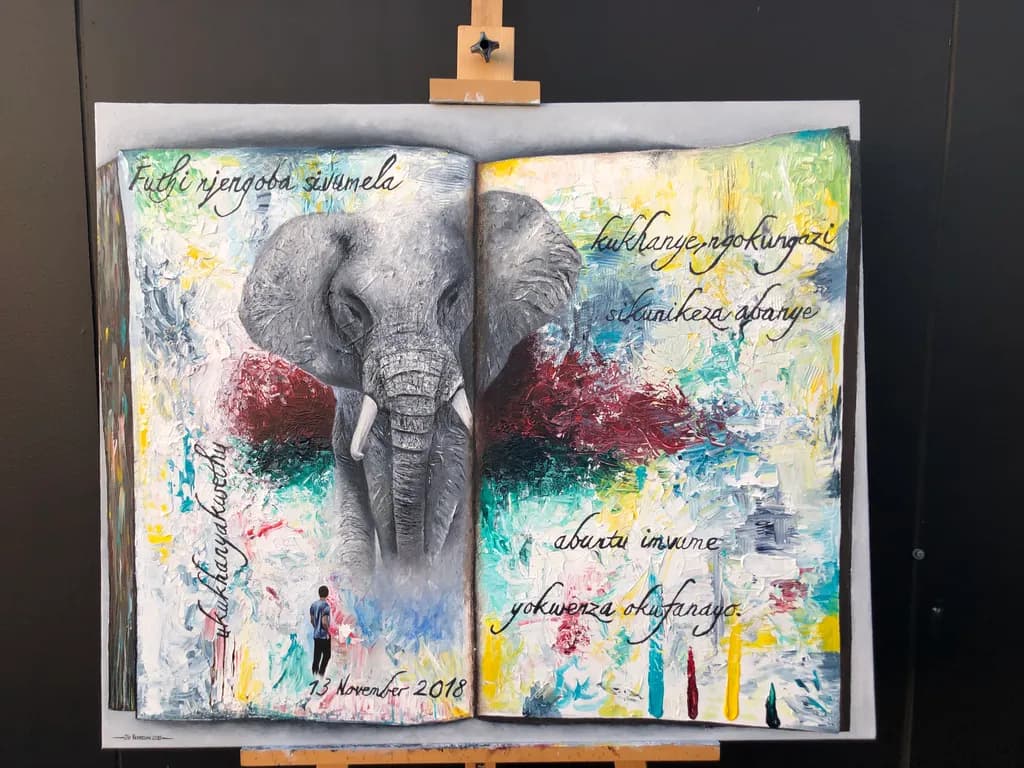 Futhi njengoba sivumela
ukukhanyakwethu
13 November 2018
kukhanye, ngokungazi
sikunikeza abanye
abuntu imvume
yokwenza okufanayo.